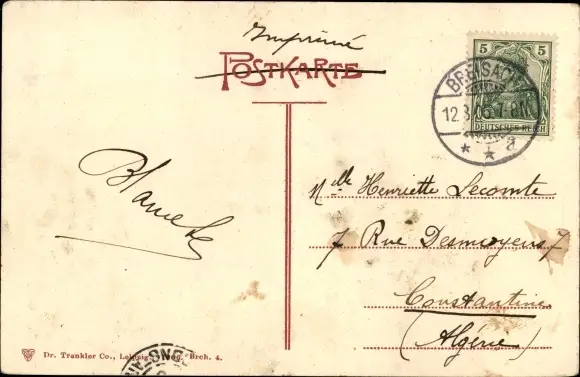 Imprimé
POSTKARTE
5 5
DEUTSCHES REICH
BREISACH
12.8.05.7-8N.
* * a
Blanche
Melle Henriette Lecomte
7 Rue Desmoyens 7
Constantine
(Algérie)
Dr. Trankler Co., Leipzig Brch. 4.